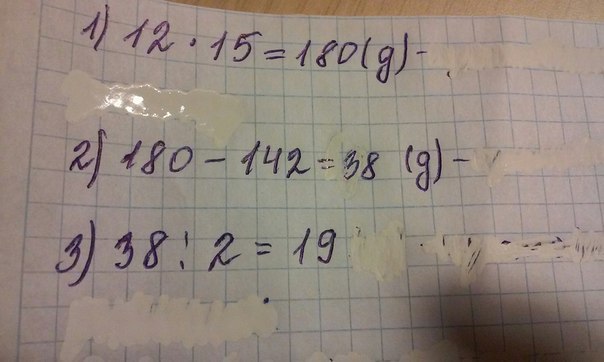 1) 12 · 15 = 180 (g) -
2) 180 - 142 = 38 (g) -
3) 38 : 2 = 19